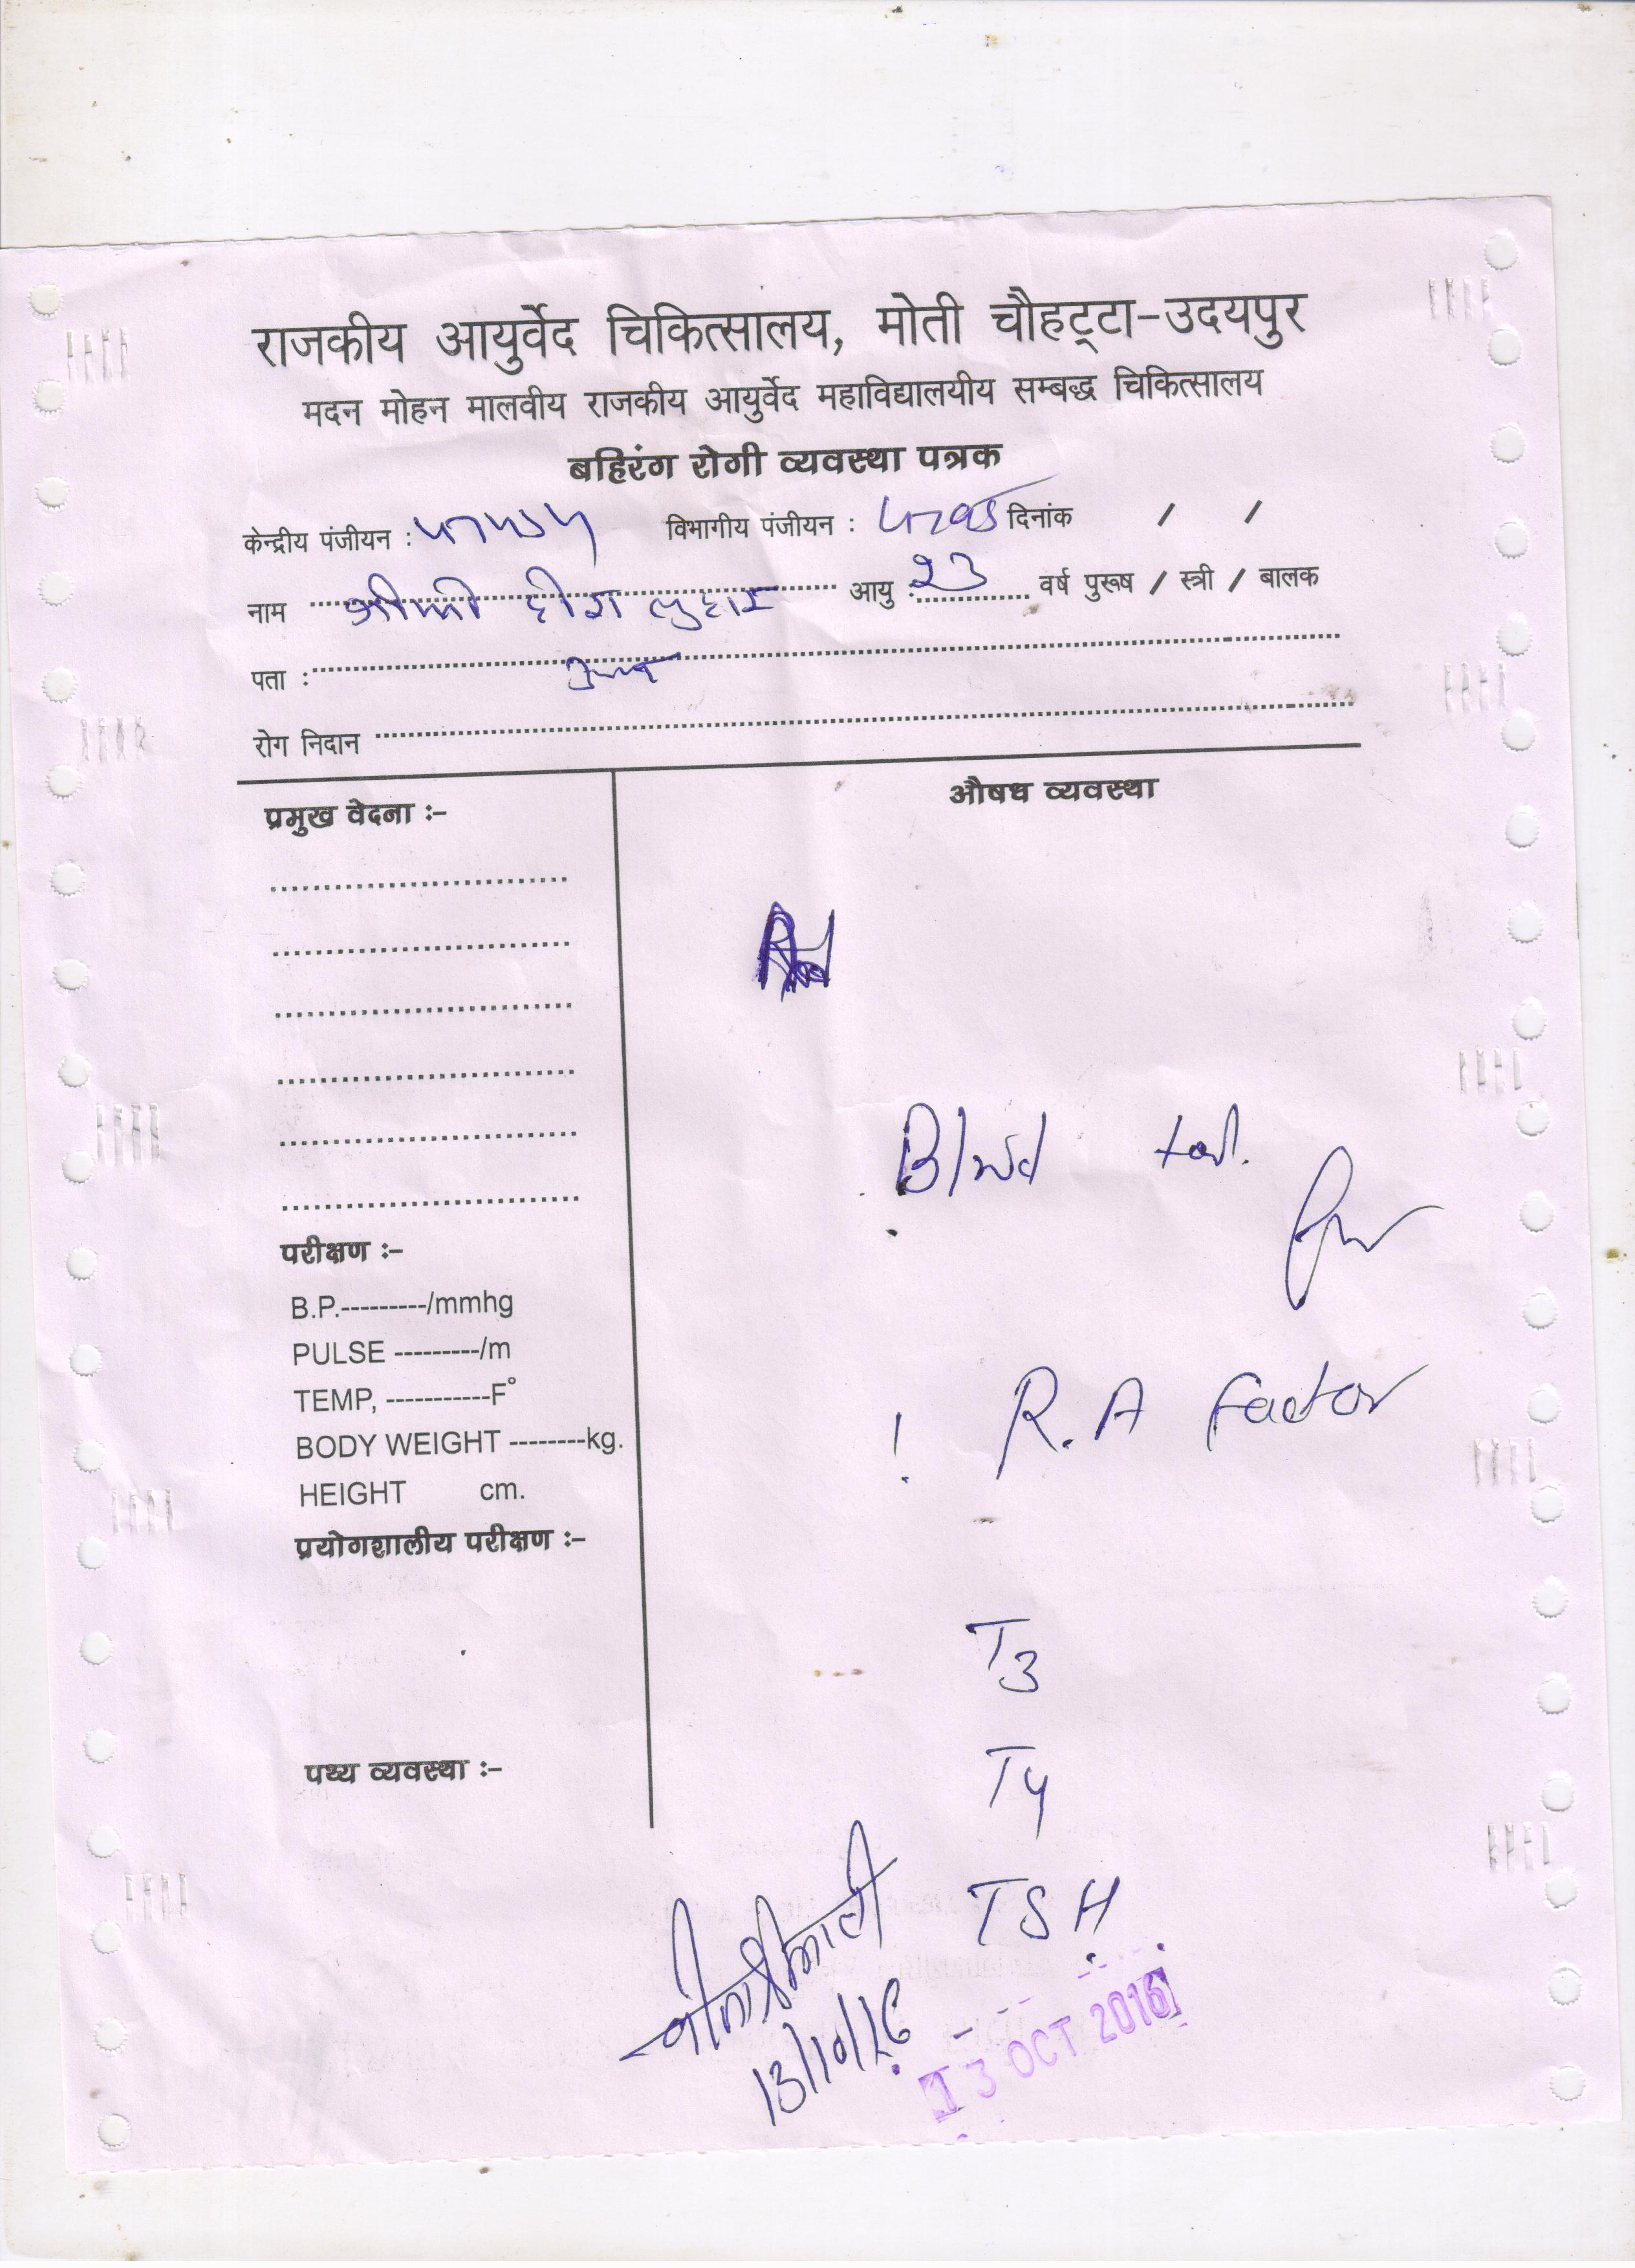 राजकीय आयुर्वेद चिकित्सालय, मोती चौहट्टा-उदयपुर
मदन मोहन मालवीय राजकीय आयुर्वेद महाविद्यालयीय सम्बद्ध चिकित्सालय
बहिरंग रोगी व्यवस्था पत्रक
केन्द्रीय पंजीयन : विभागीय पंजीयन : दिनांक / /
नाम लुहार आयु : 23 वर्ष पुरूष / स्त्री / बालक
पता :
रोग निदान
प्रमुख वेदना :-
औषध व्यवस्था
Blood
परीक्षण :-
B.P.---------/mmhg
PULSE ---------/m
TEMP, -----------F°
R.A Factor
BODY WEIGHT --------kg.
HEIGHT cm.
प्रयोगशालीय परीक्षण :-
T3
पथ्य व्यवस्था :-
T4
TSH
13/10/16
13 OCT 2016